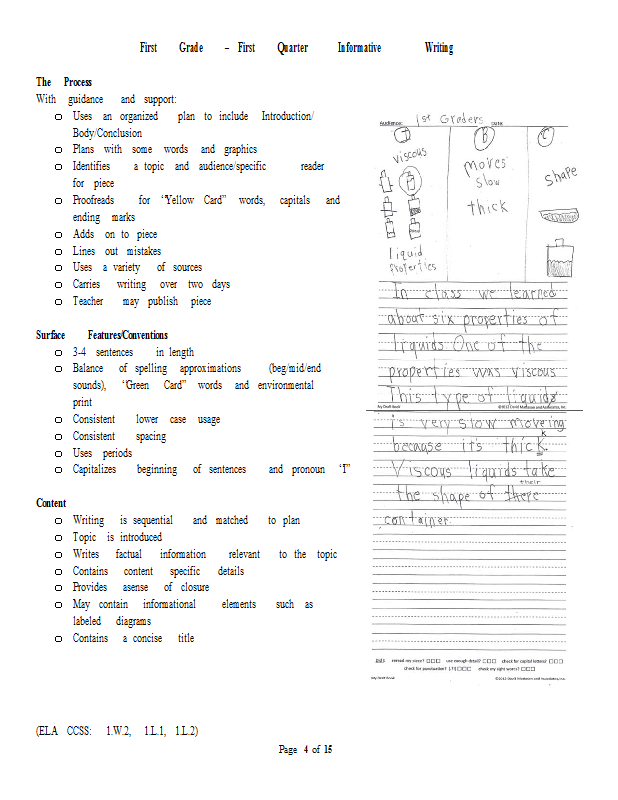 First Grade – First Quarter Informative Writing
The Process
With guidance and support:
Uses an organized plan to include Introduction/
Body/Conclusion
Plans with some words and graphics
Identifies a topic and audience/specific reader
for piece
Proofreads for "Yellow Card" words, capitals and
ending marks
Adds on to piece
Lines out mistakes
Uses a variety of sources
Carries writing over two days
Teacher may publish piece
Surface Features/Conventions
3-4 sentences in length
Balance of spelling approximations (beg/mid/end
sounds), "Green Card" words and environmental
print
Consistent lower case usage
Consistent spacing
Uses periods
Capitalizes beginning of sentences and pronoun "I"
Content
Writing is sequential and matched to plan
Topic is introduced
Writes factual information relevant to the topic
Contains content specific details
Provides asense of closure
May contain informational elements such as
labeled diagrams
Contains a concise title
(ELA CCSS: 1.W.2, 1.L.1, 1.L.2)
Page 4 of 15
Audience: 1st Graders Date:
B
C
viscous
liquid
properties
moves
slow
thick
shape
In class we learned
about six properties of
liquids One of the
properties was viscous
This type of liquids
My Draft Book
is very slow moveing
because it's thick.
Viscous liquids take
their
the shape of there
container.
reread my piece? use enough detail? check for capital letters?
check for punctuation? check my sight words?
My Draft Book